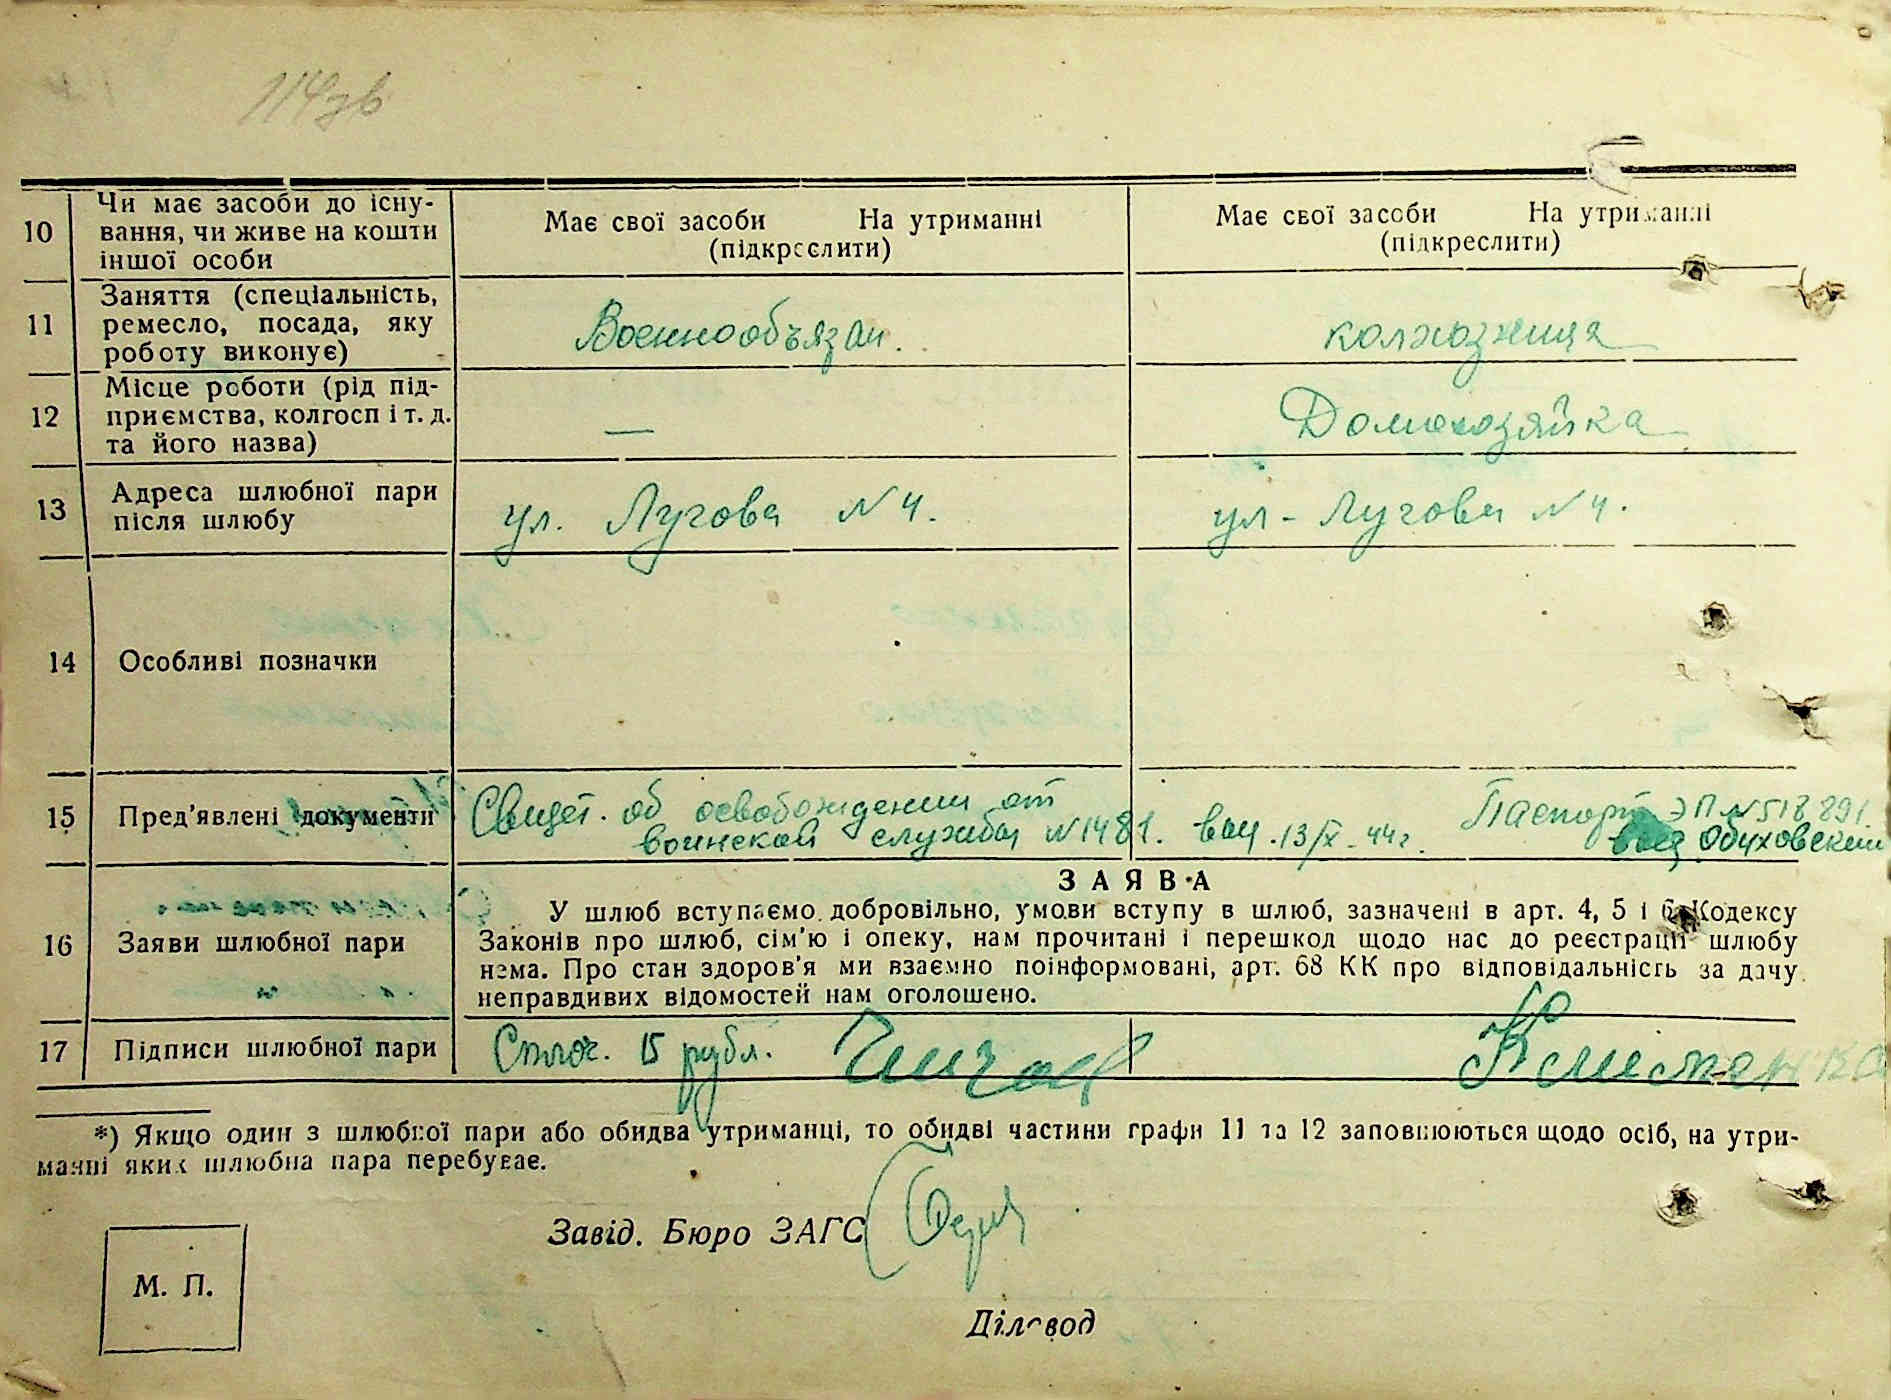 114зв
10
Чи має засоби до існу-
вання, чи живе на кошти
іншої особи
Має свої засоби На утриманні
(підкреслити)
Має свої засоби На утриманні
(підкреслити)
11
Заняття (спеціальність,
ремесло, посада, яку
роботу виконує)
Военнообъязан.
колхозница
12
Місце роботи (рід під-
приємства, колгосп і т. д.
та його назва)
—
Домохозяйка
13
Адреса шлюбної пари
після шлюбу
ул. Лугова N 4.
ул - Лугова N 4.
14
Особливі позначки
15
Пред'явлені документи
Свидет. об освобождении от
воинской службы N 1481. выд. 13/X-44г.
Паспорт ЭП N 518891
выд Обуховский
16
Заяви шлюбної пари
ЗАЯВА
У шлюб вступаємо добровільно, умови вступу в шлюб, зазначені в арт. 4, 5 і 6 Кодексу
Законів про шлюб, сім'ю і опеку, нам прочитані і перешкод щодо нас до реєстрації шлюбу
нема. Про стан здоров'я ми взаємно поінформовані, арт. 68 КК про відповідальність за дачу
неправдивих відомостей нам оголошено.
17
Підписи шлюбної пари
Сплоч. 15 рубл.
*) Якщо один з шлюбної пари або обидва утриманці, то обидві частини графи 11 та 12 заповнюються щодо осіб, на утри-
манні яких шлюбна пара перебуває.
Завід. Бюро ЗАГС
М. П.
Діловод